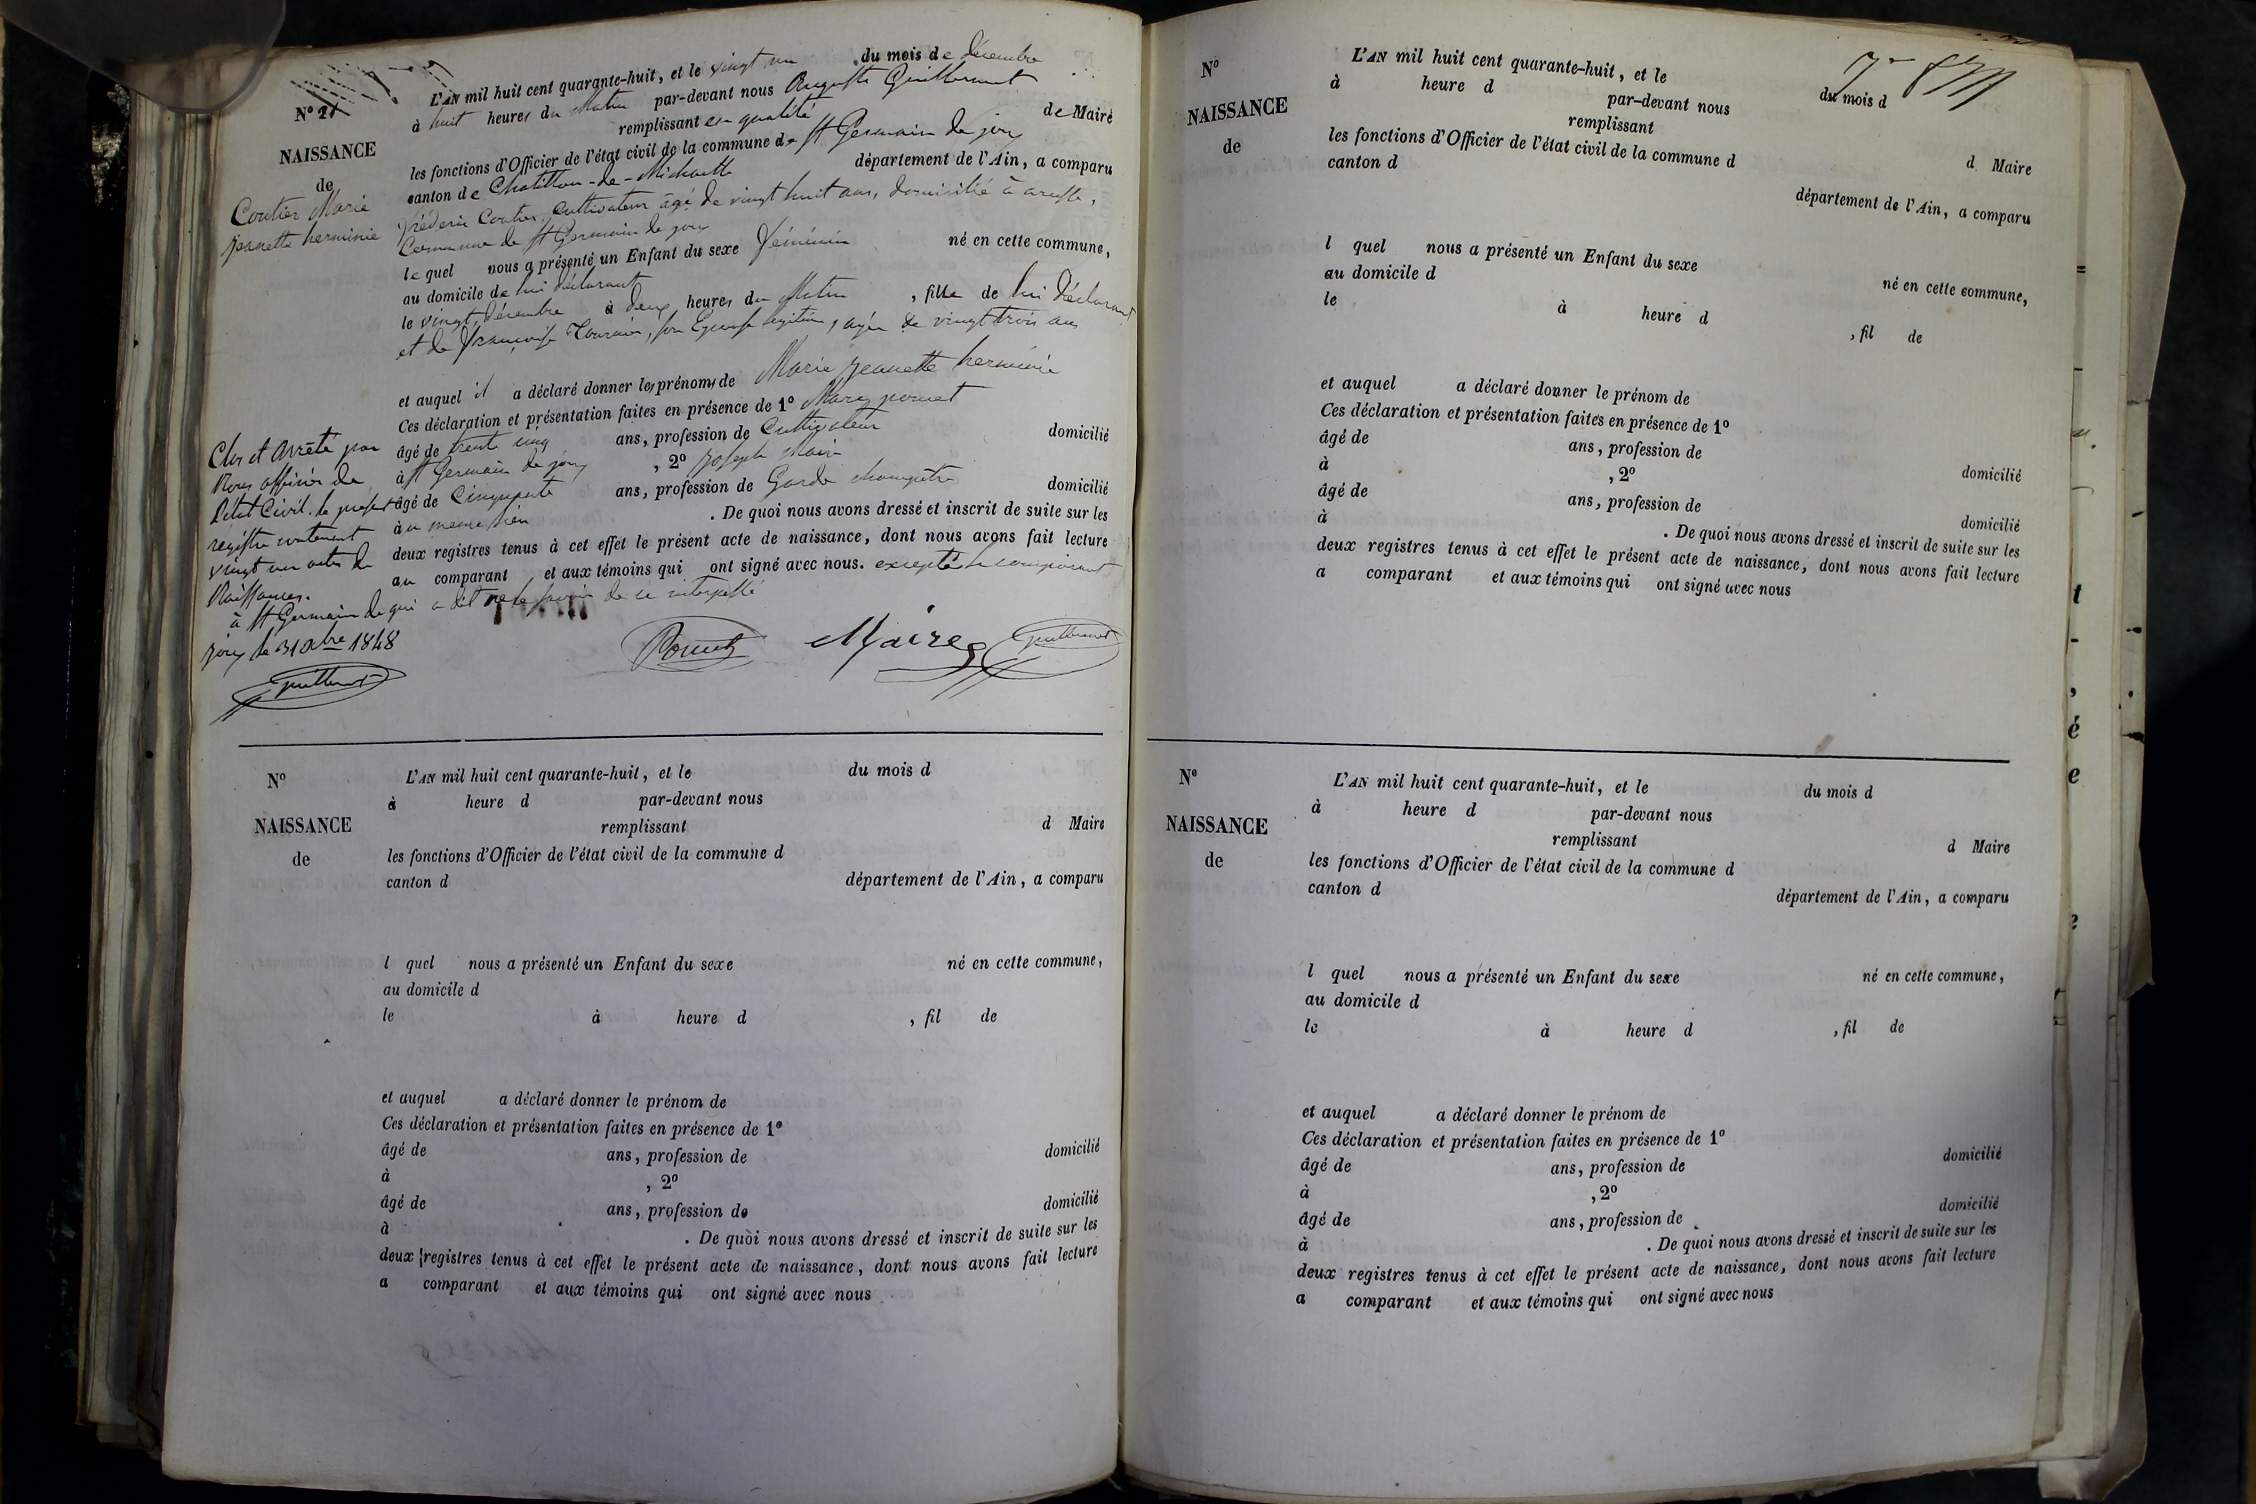 N° 21
NAISSANCE
de
Coutier Marie
jeanette herminie
L'AN mil huit cent quarante-huit, et le vingt un du mois de décembre
à huit heures du Matin par-devant nous Auguste Guillermet
remplissant en qualité de Maire
les fonctions d'Officier de l'état civil de la commune de St Germain de joux
canton de Chatillon-de-Michaille département de l'Ain, a comparu
fréderic Coutier, cultivateur âgé de vingt huit ans, domicilié à
Commune de St Germain de joux
lequel nous a présenté un Enfant du sexe féminin né en cette commune,
au domicile de lui déclarant
le vingt décembre à deux heures du Matin , fille de lui déclarant
et de françoise Tournier, son Epouse légitime, agée de vingt trois ans
et auquel il a déclaré donner les prénoms de Marie jeanette herminie
Ces déclaration et présentation faites en présence de 1° Marc poncet
âgé de trente cinq ans, profession de Cultivateur domicilié
à St Germain de joux , 2° joseph Maire
âgé de Cinquante ans, profession de Garde champêtre domicilié
à u meme lieu . De quoi nous avons dressé et inscrit de suite sur les
deux registres tenus à cet effet le présent acte de naissance, dont nous avons fait lecture
au comparant et aux témoins qui ont signé avec nous. excepté le comparant
qui a dit ne le savoir de ce interpellé
Clos et Arrêté par
Nous officier de
l'etat Civil. le présent
registre contenant
vingt un actes de
Naissances.
à St Germain de
joux le 31 Xbre 1848
Guillermet
Poncet
Maire
Guillermet
N°
NAISSANCE
de
L'AN mil huit cent quarante-huit, et le du mois d
à heure d par-devant nous
remplissant d Maire
les fonctions d'Officier de l'état civil de la commune d
canton d département de l'Ain, a comparu
l quel nous a présenté un Enfant du sexe né en cette commune,
au domicile d
le à heure d , fil de
et auquel a déclaré donner le prénom de
Ces déclaration et présentation faites en présence de 1°
âgé de ans, profession de domicilié
à , 2°
âgé de ans, profession de domicilié
à . De quoi nous avons dressé et inscrit de suite sur les
deux registres tenus à cet effet le présent acte de naissance, dont nous avons fait lecture
a comparant et aux témoins qui ont signé avec nous
N°
NAISSANCE
de
L'AN mil huit cent quarante-huit, et le du mois d
à heure d par-devant nous
remplissant d Maire
les fonctions d'Officier de l'état civil de la commune d
canton d département de l'Ain, a comparu
l quel nous a présenté un Enfant du sexe né en cette commune,
au domicile d
le à heure d , fil de
et auquel a déclaré donner le prénom de
Ces déclaration et présentation faites en présence de 1°
âgé de ans, profession de domicilié
à , 2°
âgé de ans, profession de domicilié
à . De quoi nous avons dressé et inscrit de suite sur les
deux registres tenus à cet effet le présent acte de naissance, dont nous avons fait lecture
a comparant et aux témoins qui ont signé avec nous
N°
NAISSANCE
de
L'AN mil huit cent quarante-huit, et le du mois d
à heure d par-devant nous
remplissant d Maire
les fonctions d'Officier de l'état civil de la commune d
canton d département de l'Ain, a comparu
l quel nous a présenté un Enfant du sexe né en cette commune,
au domicile d
le à heure d , fil de
et auquel a déclaré donner le prénom de
Ces déclaration et présentation faites en présence de 1°
âgé de ans, profession de domicilié
à , 2°
âgé de ans, profession de domicilié
à . De quoi nous avons dressé et inscrit de suite sur les
deux registres tenus à cet effet le présent acte de naissance, dont nous avons fait lecture
a comparant et aux témoins qui ont signé avec nous